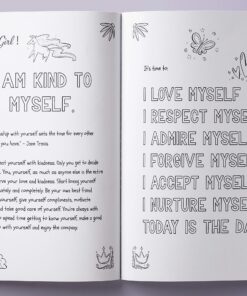 Girl!
AM KIND TO
MYSELF.
ship with yourself sets the time for every other
you have." - Jane Travis
eat yourself with kindness. Only you get to decide
You, yourself, as much as anyone else in the entire
your love and kindness. Start loving yourself
ately and completely. Be your own best friend.
yourself, give yourself compliments, motivate
nd take good care of yourself. You're always with
spend time getting to know yourself, make a good
with yourself and enjoy the company.
It's time to:
I LOVE MYSELF
I RESPECT MYSE
I ADMIRE MYSEL
I FORGIVE MYSE
I ACCEPT MYSEL
I NURTURE MYSE
TODAY IS THE DA